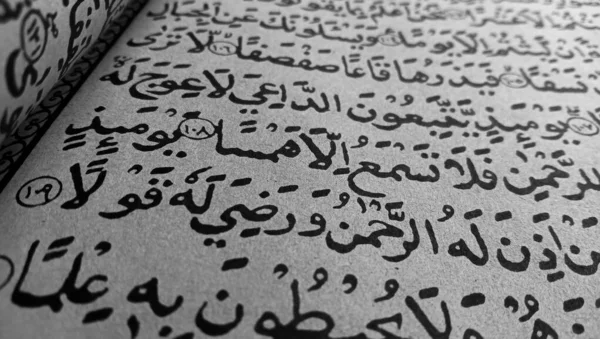 نَحْنُ أَعْلَمُ بِمَا يَقُولُونَ
لَّبِثْتُمْ إِلَّا يَوْمًا ١٠٤ وَيَسْـَٔلُونَكَ عَنِ الْجِبَالِ
نَسْفًا ١٠٥ فَيَذَرُهَا قَاعًا صَفْصَفًا ١٠٦ لَّا تَرَىٰ
١٠٧ يَوْمَئِذٍ يَتَّبِعُونَ الدَّاعِيَ لَا عِوَجَ لَهُ
لِلرَّحْمَٰنِ فَلَا تَسْمَعُ إِلَّا هَمْسًا ١٠٨ يَوْمَئِذٍ
مَنْ أَذِنَ لَهُ الرَّحْمَٰنُ وَرَضِيَ لَهُ قَوْلًا ١٠٩
وَلَا يُحِيطُونَ بِهِ عِلْمًا